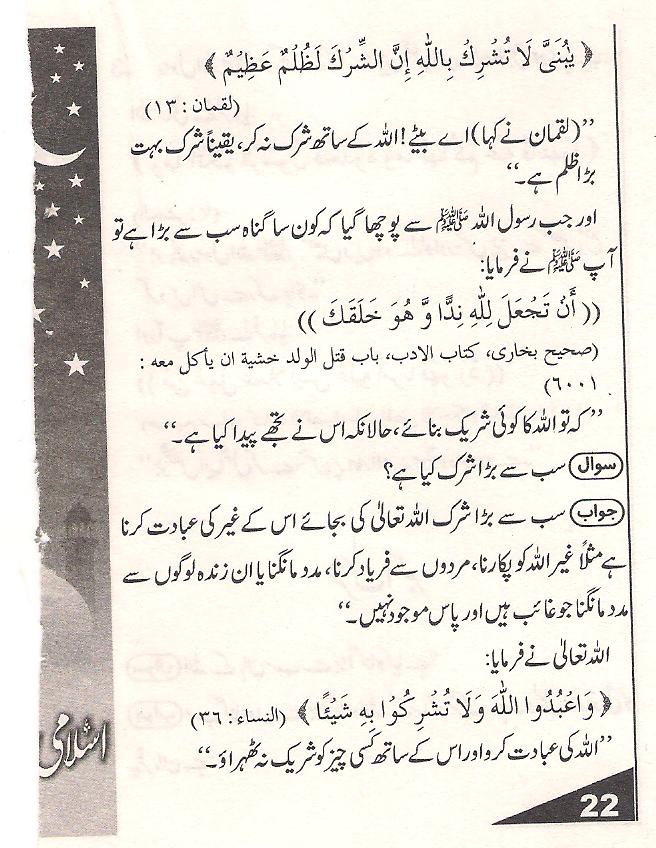 ﴿ يٰبُنَىَّ لَا تُشْرِكْ بِاللّٰهِ اِنَّ الشِّرْكَ لَظُلْمٌ عَظِيْمٌ ﴾
(لقمان : ۱۳)
’’(لقمان نے کہا) اے بیٹے! اللہ کے ساتھ شرک نہ کر، یقیناً شرک بہت
بڑا ظلم ہے۔‘‘
اور جب رسول اللہ ﷺ سے پوچھا گیا کہ کون سا گناہ سب سے بڑا ہے تو
آپ ﷺ نے فرمایا:
(( أَنْ تَجْعَلَ لِلّٰهِ نِدًّا وَّ هُوَ خَلَقَكَ ))
(صحيح بخارى، كتاب الادب، باب قتل الولد خشية ان يأكل معه :
۶۰۰۱)
’’کہ تو اللہ کا کوئی شریک بنائے، حالانکہ اس نے تجھے پیدا کیا ہے۔‘‘
سوال سب سے بڑا شرک کیا ہے؟
جواب سب سے بڑا شرک اللہ تعالیٰ کی بجائے اس کے غیر کی عبادت کرنا
ہے مثلاً غیر اللہ کو پکارنا، مردوں سے فریاد کرنا، مدد مانگنا یا ان زندہ لوگوں سے
مدد مانگنا جو غائب ہیں اور پاس موجود نہیں۔‘‘
اللہ تعالیٰ نے فرمایا:
﴿ وَاعْبُدُوا اللّٰهَ وَلَا تُشْرِكُوْا بِهٖ شَيْئًا ﴾ (النساء : ۳۶)
’’اللہ کی عبادت کرو اور اس کے ساتھ کسی چیز کو شریک نہ ٹھہراؤ۔‘‘
اسلامی
22